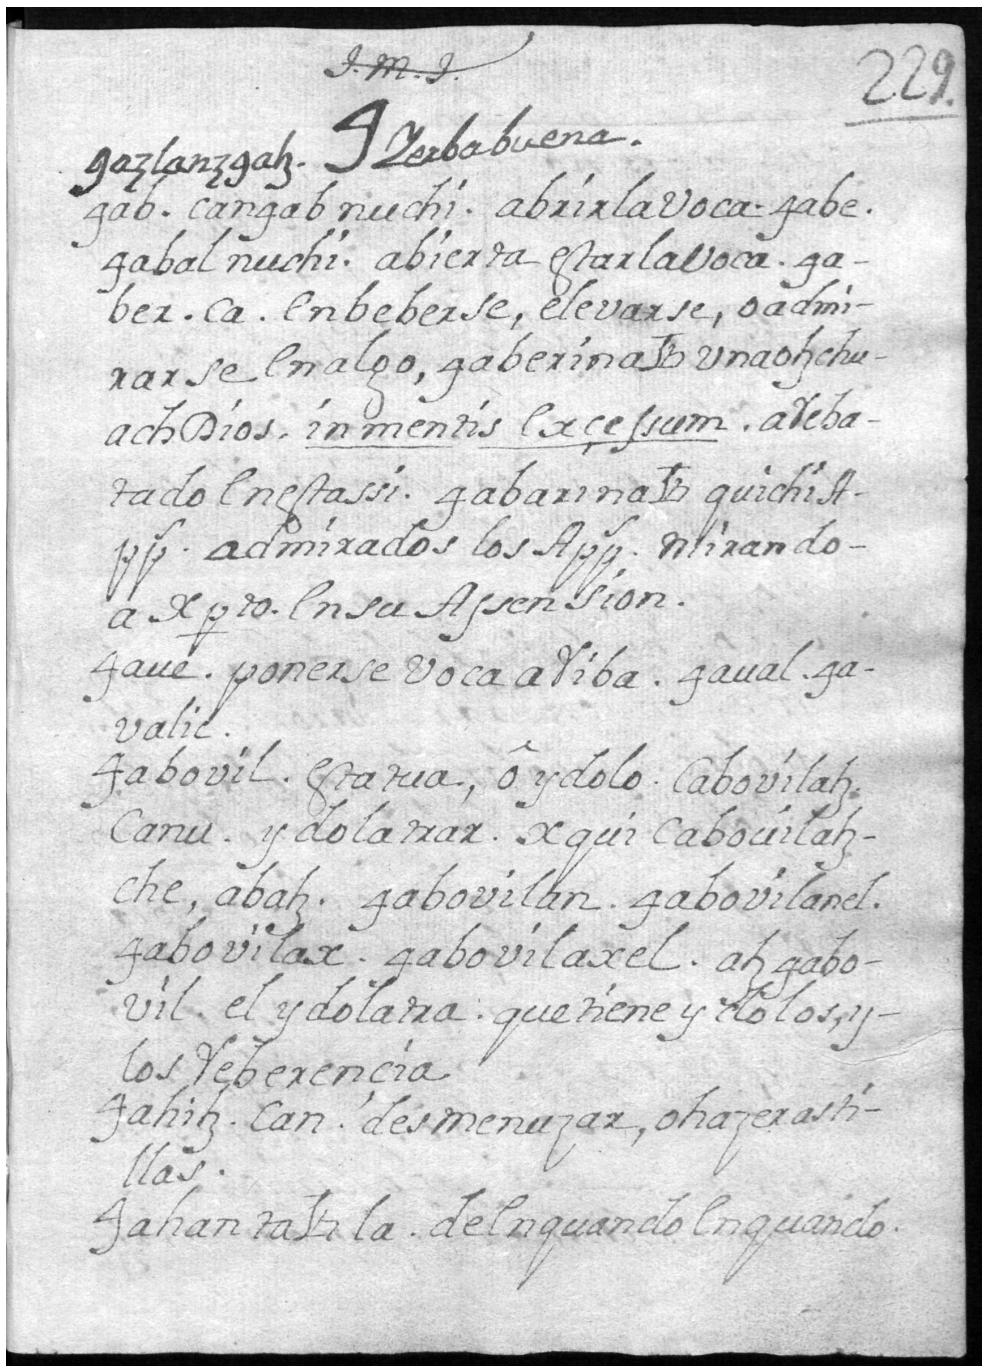 J. M. J.
229.
gaꜩlanꜩgaꜩ. ꜭ Yerbabuena.
ꜭab. canꜭab nuchi. abrir la Voca. ꜭabe.
ꜭabal nuchi. abierta estar la Voca. ꜭa-
ber. Ca. Enbeberse, elevarse, o admi-
rarse En algo, ꜭaberinaꜫ v naoꜩ chu-
ach Dios. in mentis Exçessum. aReba-
tado En estassi. ꜭabarinaꜫ quichi A-
pp. admirados los App. mirando-
a Xpto. En su Assension.
ꜭaue. ponerse Voca aRiba. ꜭaual. ꜭa-
valic.
ꜭabovil. estatua, ô ydolo. Cabovilaꜩ.
Canu. ydolatrar. xqui Cabovilaꜩ-
che, abaꜩ. ꜭabovilan. ꜭabovilanel.
ꜭabovilax. ꜭabovilaxel. aꜩꜭabo-
vil. el ydolatra. que tiene ydolos, y-
los Reberencia
ꜭahiꜩ. Can. desmenuzar, o hazer asti-
llas.
ꜭahan la. de En quando En quando.